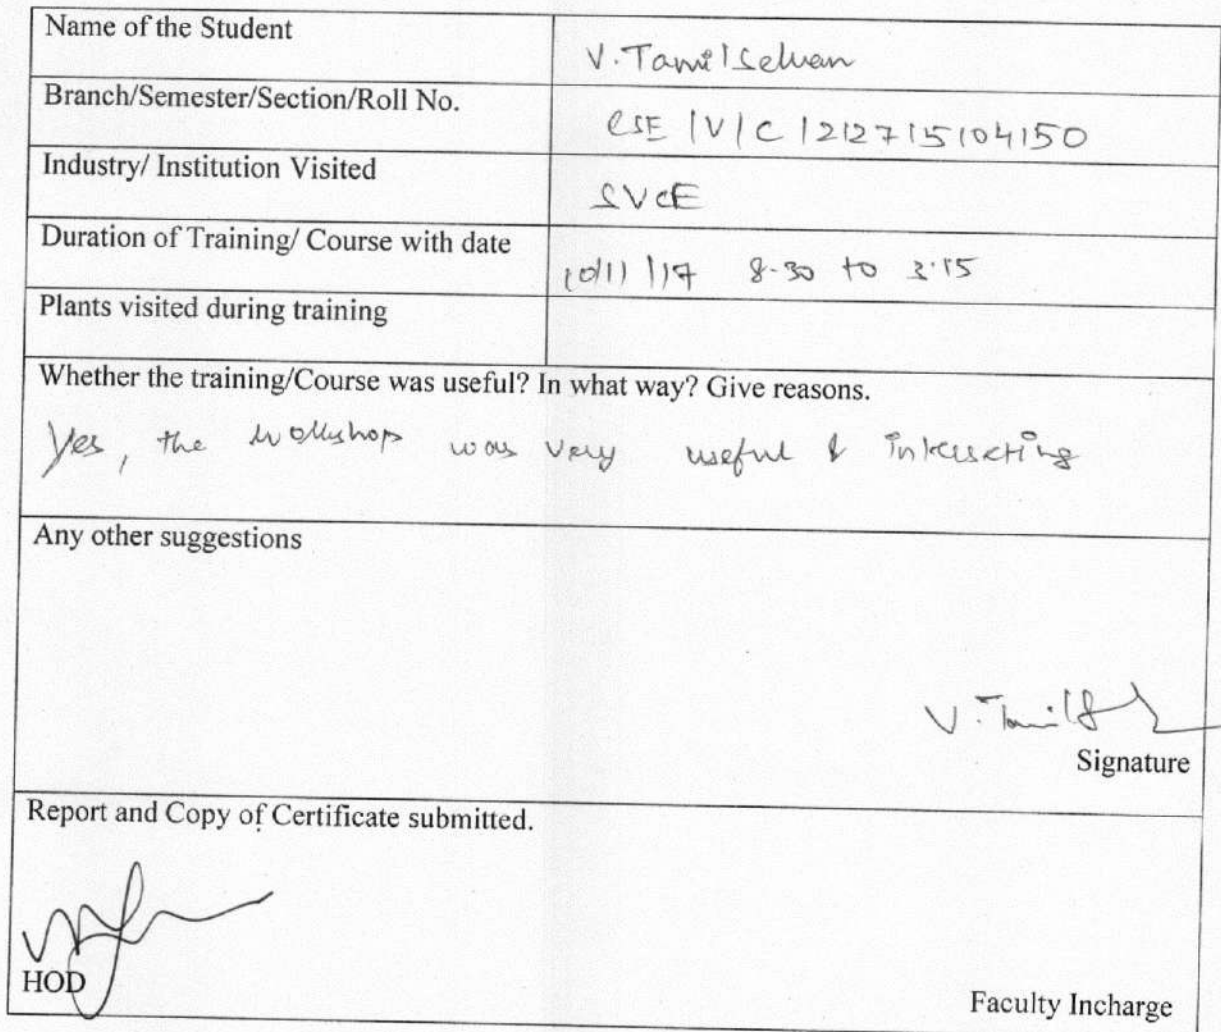 Name of the Student
V. Tamil Selvan
Branch/Semester/Section/Roll No.
CSE / V / C / 212715104150
Industry/ Institution Visited
SVCE
Duration of Training/ Course with date
10/11/17 8-30 to 3.15
Plants visited during training
Whether the training/Course was useful? In what way? Give reasons.
Yes, the workshop was very useful & interesting
Any other suggestions
V. Tamil
Signature
Report and Copy of Certificate submitted.
HOD
Faculty Incharge